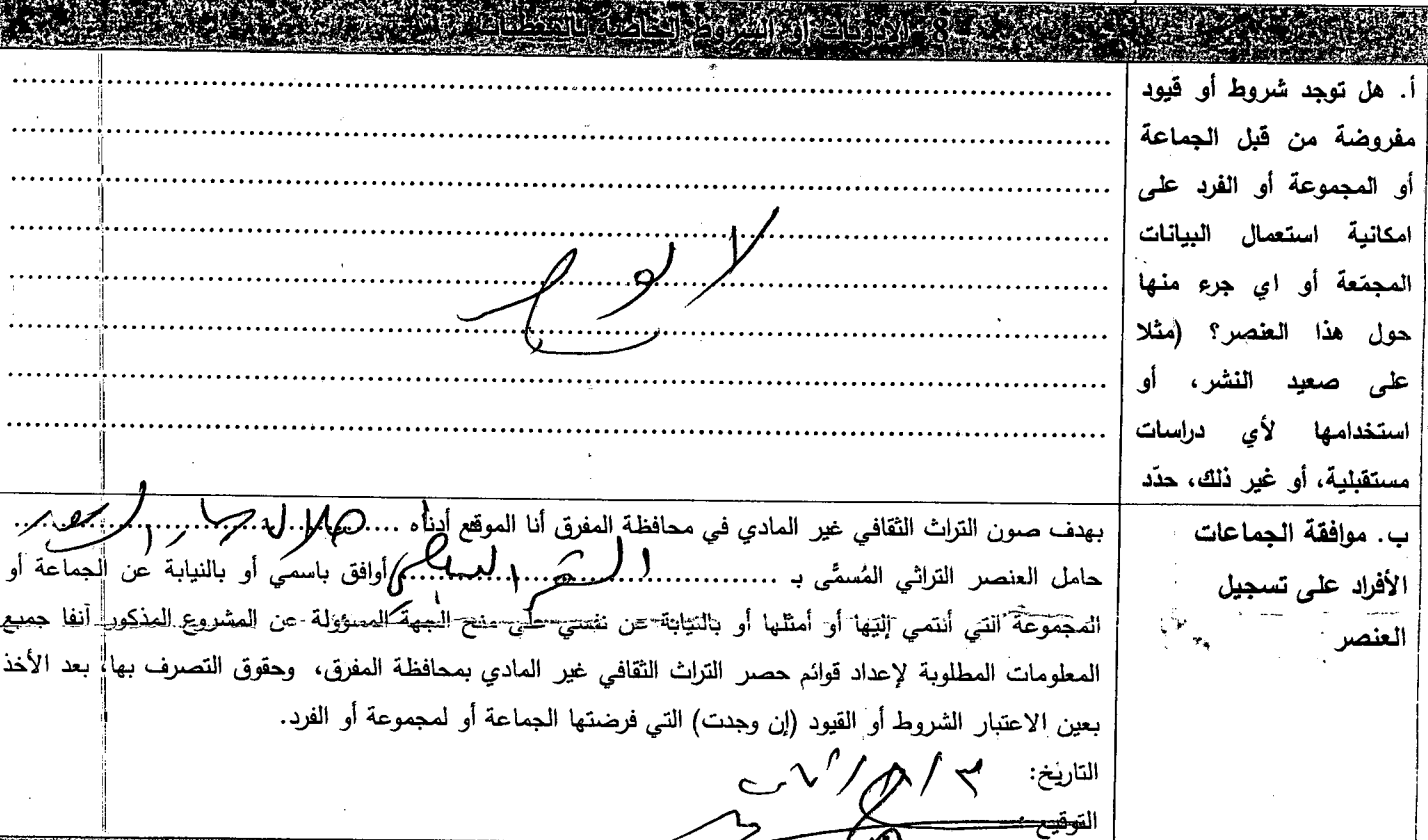 8. الأذونات أو الشروط الخاصة بالمعطيات
أ. هل توجد شروط أو قيود
مفروضة من قبل الجماعة
أو المجموعة أو الفرد على
امكانية استعمال البيانات
المجمّعة أو اي جرء منها
حول هذا العنصر؟ (مثلا
على صعيد النشر، أو
استخدامها لأي دراسات
مستقبلية، أو غير ذلك، حدّد
لا يوجد
ب. موافقة الجماعات
الأفراد على تسجيل
العنصر
بهدف صون التراث الثقافي غير المادي في محافظة المفرق أنا الموقع أدناه هلال
حامل العنصر التراثي المُسمَّى بـ الشعر النبطي أوافق باسمي أو بالنيابة عن الجماعة أو
المجموعة التي أنتمي إليها أو أمثلها أو بالنيابة عن نفسي على منح الجهة المسؤولة عن المشروع المذكور آنفا جميع
المعلومات المطلوبة لإعداد قوائم حصر التراث الثقافي غير المادي بمحافظة المفرق، وحقوق التصرف بها، بعد الأخذ
بعين الاعتبار الشروط أو القيود (إن وجدت) التي فرضتها الجماعة أو لمجموعة أو الفرد.
التاريخ:
التوقيع: